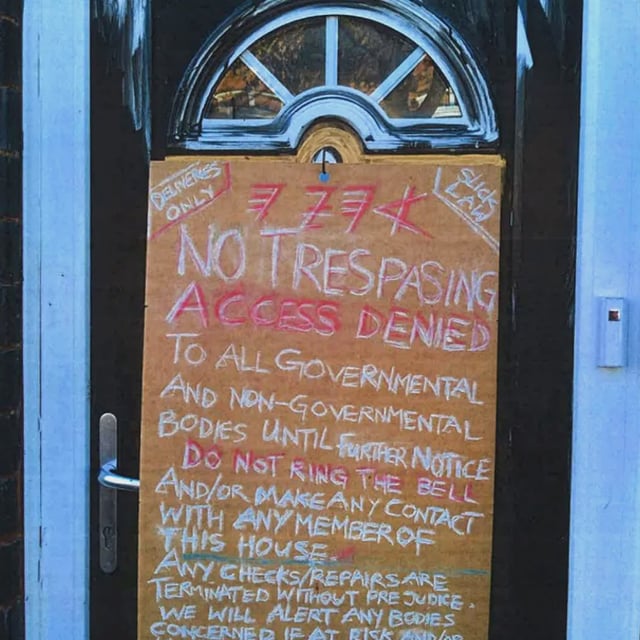 DELIVERIES
ONLY
NO TRESPASING
ACCESS DENIED
TO ALL GOVERNMENTAL
AND NON-GOVERNMENTAL
BODIES UNTIL FURTHER NOTICE
DO NOT RING THE BELL
AND/OR MAKE ANY CONTACT
WITH ANY MEMBER OF
THIS HOUSE
ANY CHECKS/REPAIRS ARE
TERMINATED WITHOUT PREJUDICE.
WE WILL ALERT ANY BODIES
CONCERNED IF AT RISK AND/OR